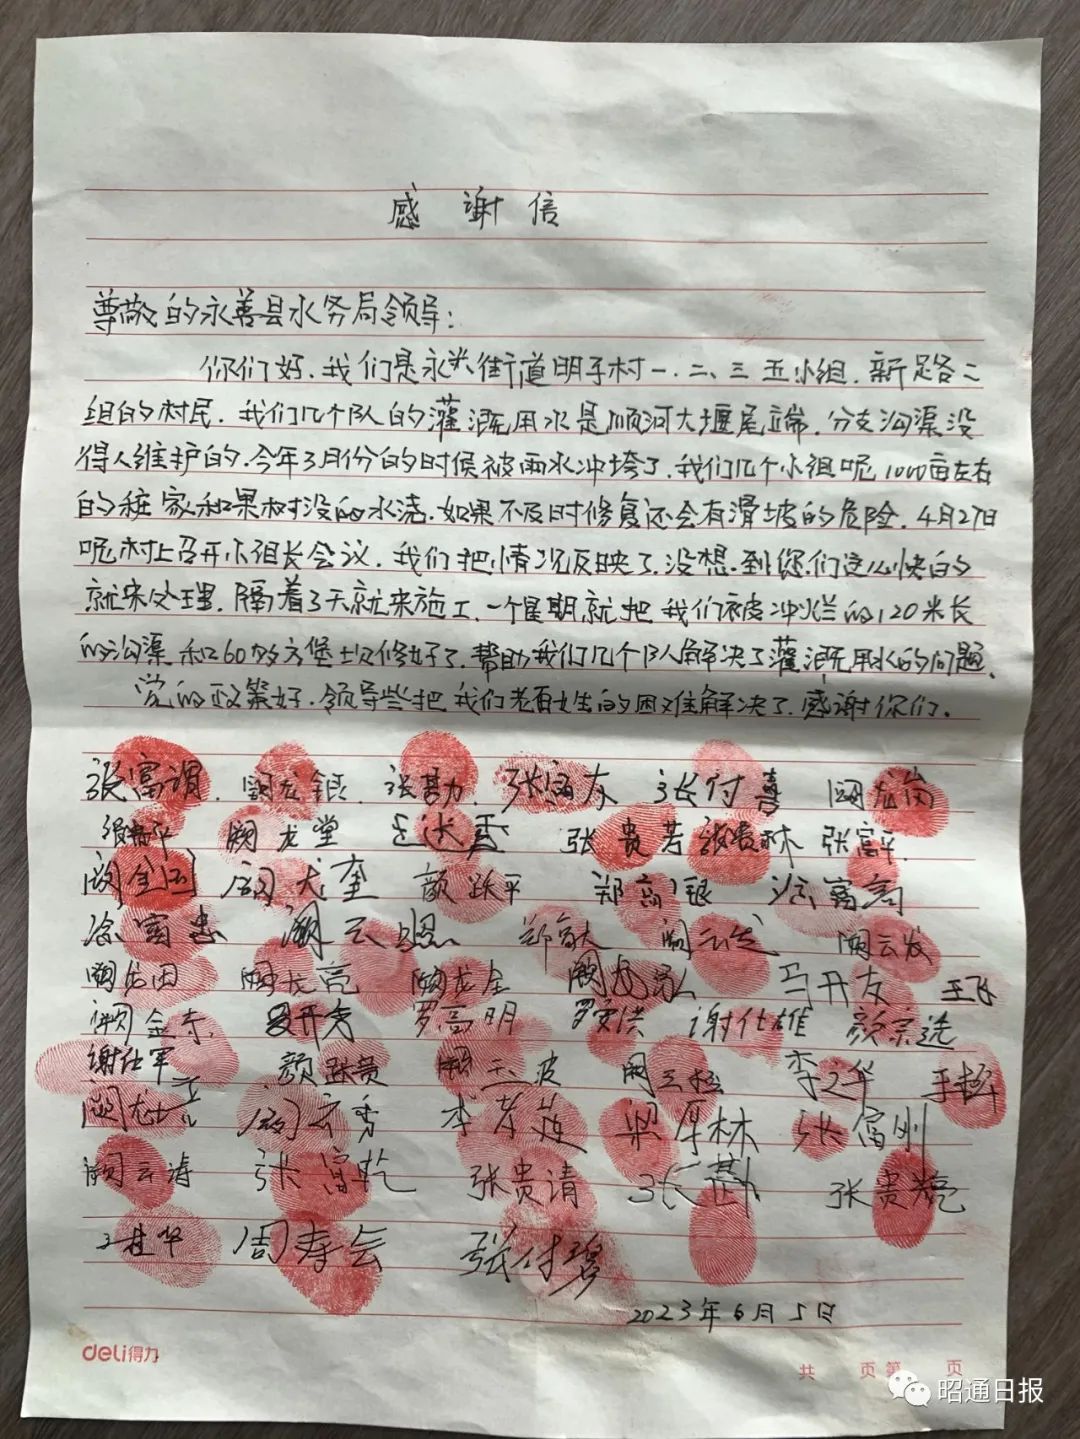 感谢信
尊敬的永善县水务局领导:
你们好.我们是永兴街道明子村一.二、三五小组.新路二
组的村民.我们几个队的灌溉用水是顺河大堰尾端.分支沟渠没
得人维护的.今年3月份的时候被雨水冲垮了.我们几个小组呢1000亩左右
的桩家和果树没的水浇.如果不及时修复还会有滑坡的危险.4月27日
呢村上召开小组长会议.我们把情况反映了.没想到您们这么快的
就来处理.隔着3天就来施工.一个星期就把我们被冲烂的120米长
的沟渠和60多方堡坎修好了.帮助我们几个队解决了灌溉用水的问题.
党的政策好.领导些把我们老百姓的困难解决了.感谢你们.
张富谓.阚龙银.张勘.张富友 张付喜 阚龙岗
阚龙堂 张贵芳 张贵林 张富平
阚金 阚龙奎 颜跃平 郑高银
富忠 阚云 郑 阚云 阚云发
阚龙田 阚龙亮 阚龙全 阚龙 马开友 王飞
阚金 罗高明 罗安洪 谢仕雄 颜宗选
谢仕军 颜跃贵 阚云波 阚云 李 华
阚龙 阚云秀 李芳莲 梁厚林 张富刚
阚云涛 张富乾 张贵请 张 张贵
王桂华 周寿会 张付
2023年6月5日
deli得力
共 页第 页
昭通日报